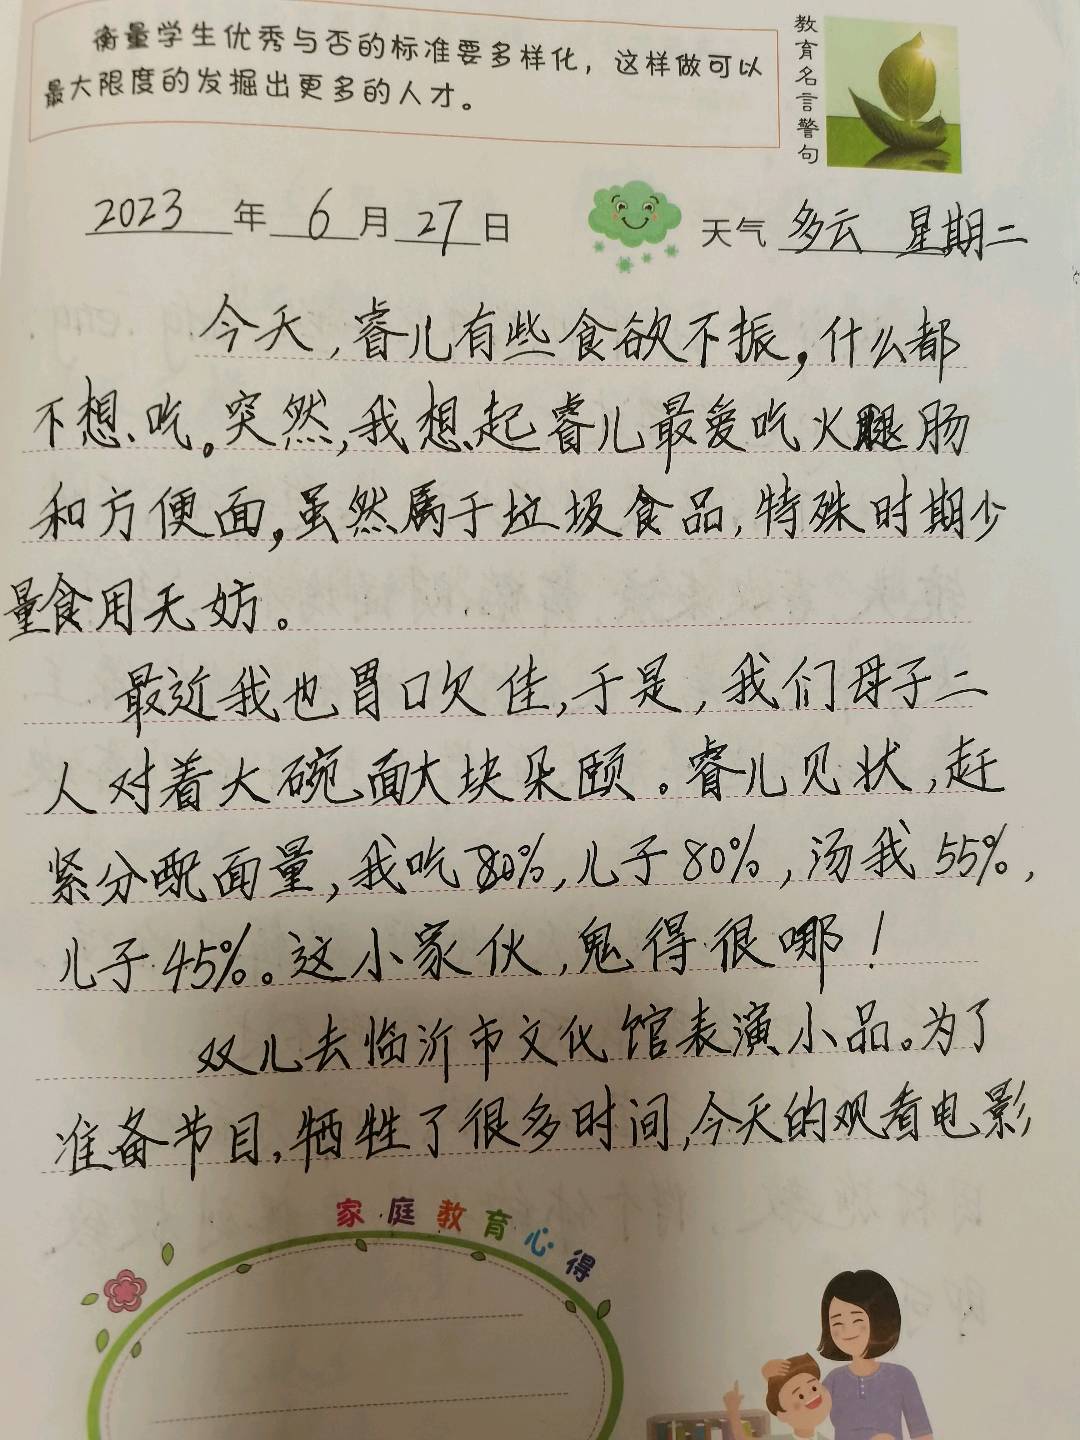 衡量学生优秀与否的标准要多样化，这样做可以
最大限度的发掘出更多的人才。
教育名言警句
2023 年 6 月 27 日
天气 多云 星期二
今天，睿儿有些食欲不振，什么都
不想吃。突然，我想起睿儿最爱吃火腿肠
和方便面，虽然属于垃圾食品，特殊时期少
量食用无妨。
最近我也胃口欠佳，于是，我们母子二
人对着大碗面大块朵颐。睿儿见状，赶
紧分配面量，我吃80%，儿子80%，汤我55%，
儿子45%。这小家伙，鬼得很哪！
双儿去临沂市文化馆表演小品。为了
准备节目，牺牲了很多时间，今天的观看电影
家庭教育心得